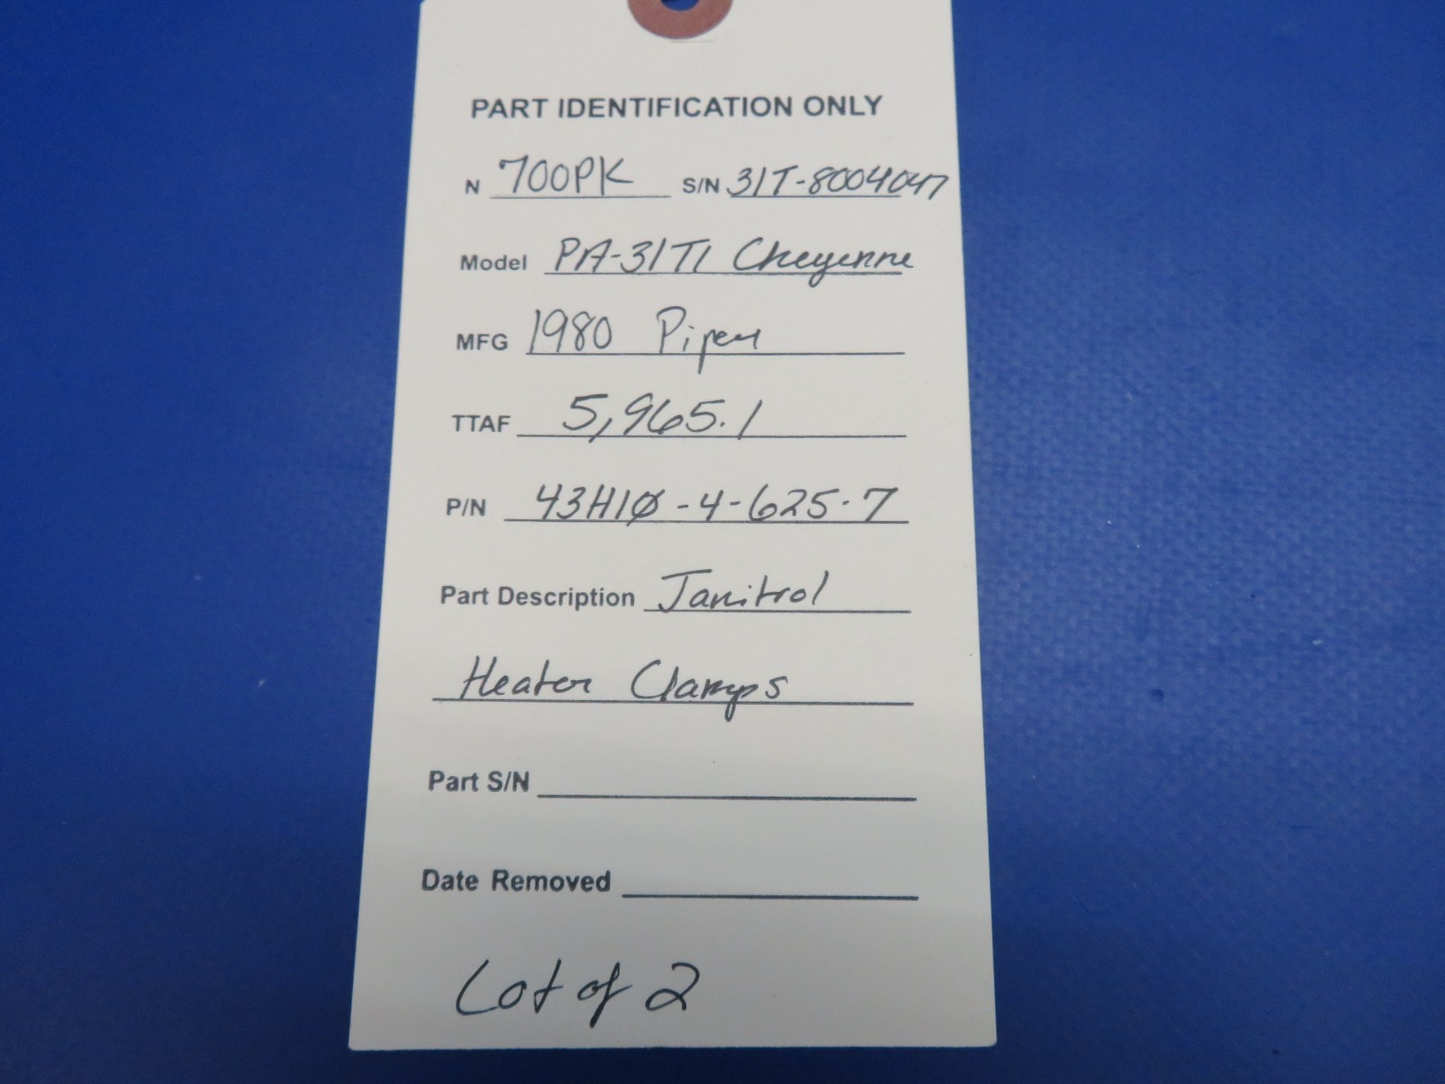 PART IDENTIFICATION ONLY
N 700PK S/N 31T-8004047
Model PA-31T1 Cheyenne
MFG 1980 Piper
TTAF 5,965.1
P/N 43H1Ø-4-625-7
Part Description Janitrol
Heater Clamps
Part S/N
Date Removed
Lot of 2